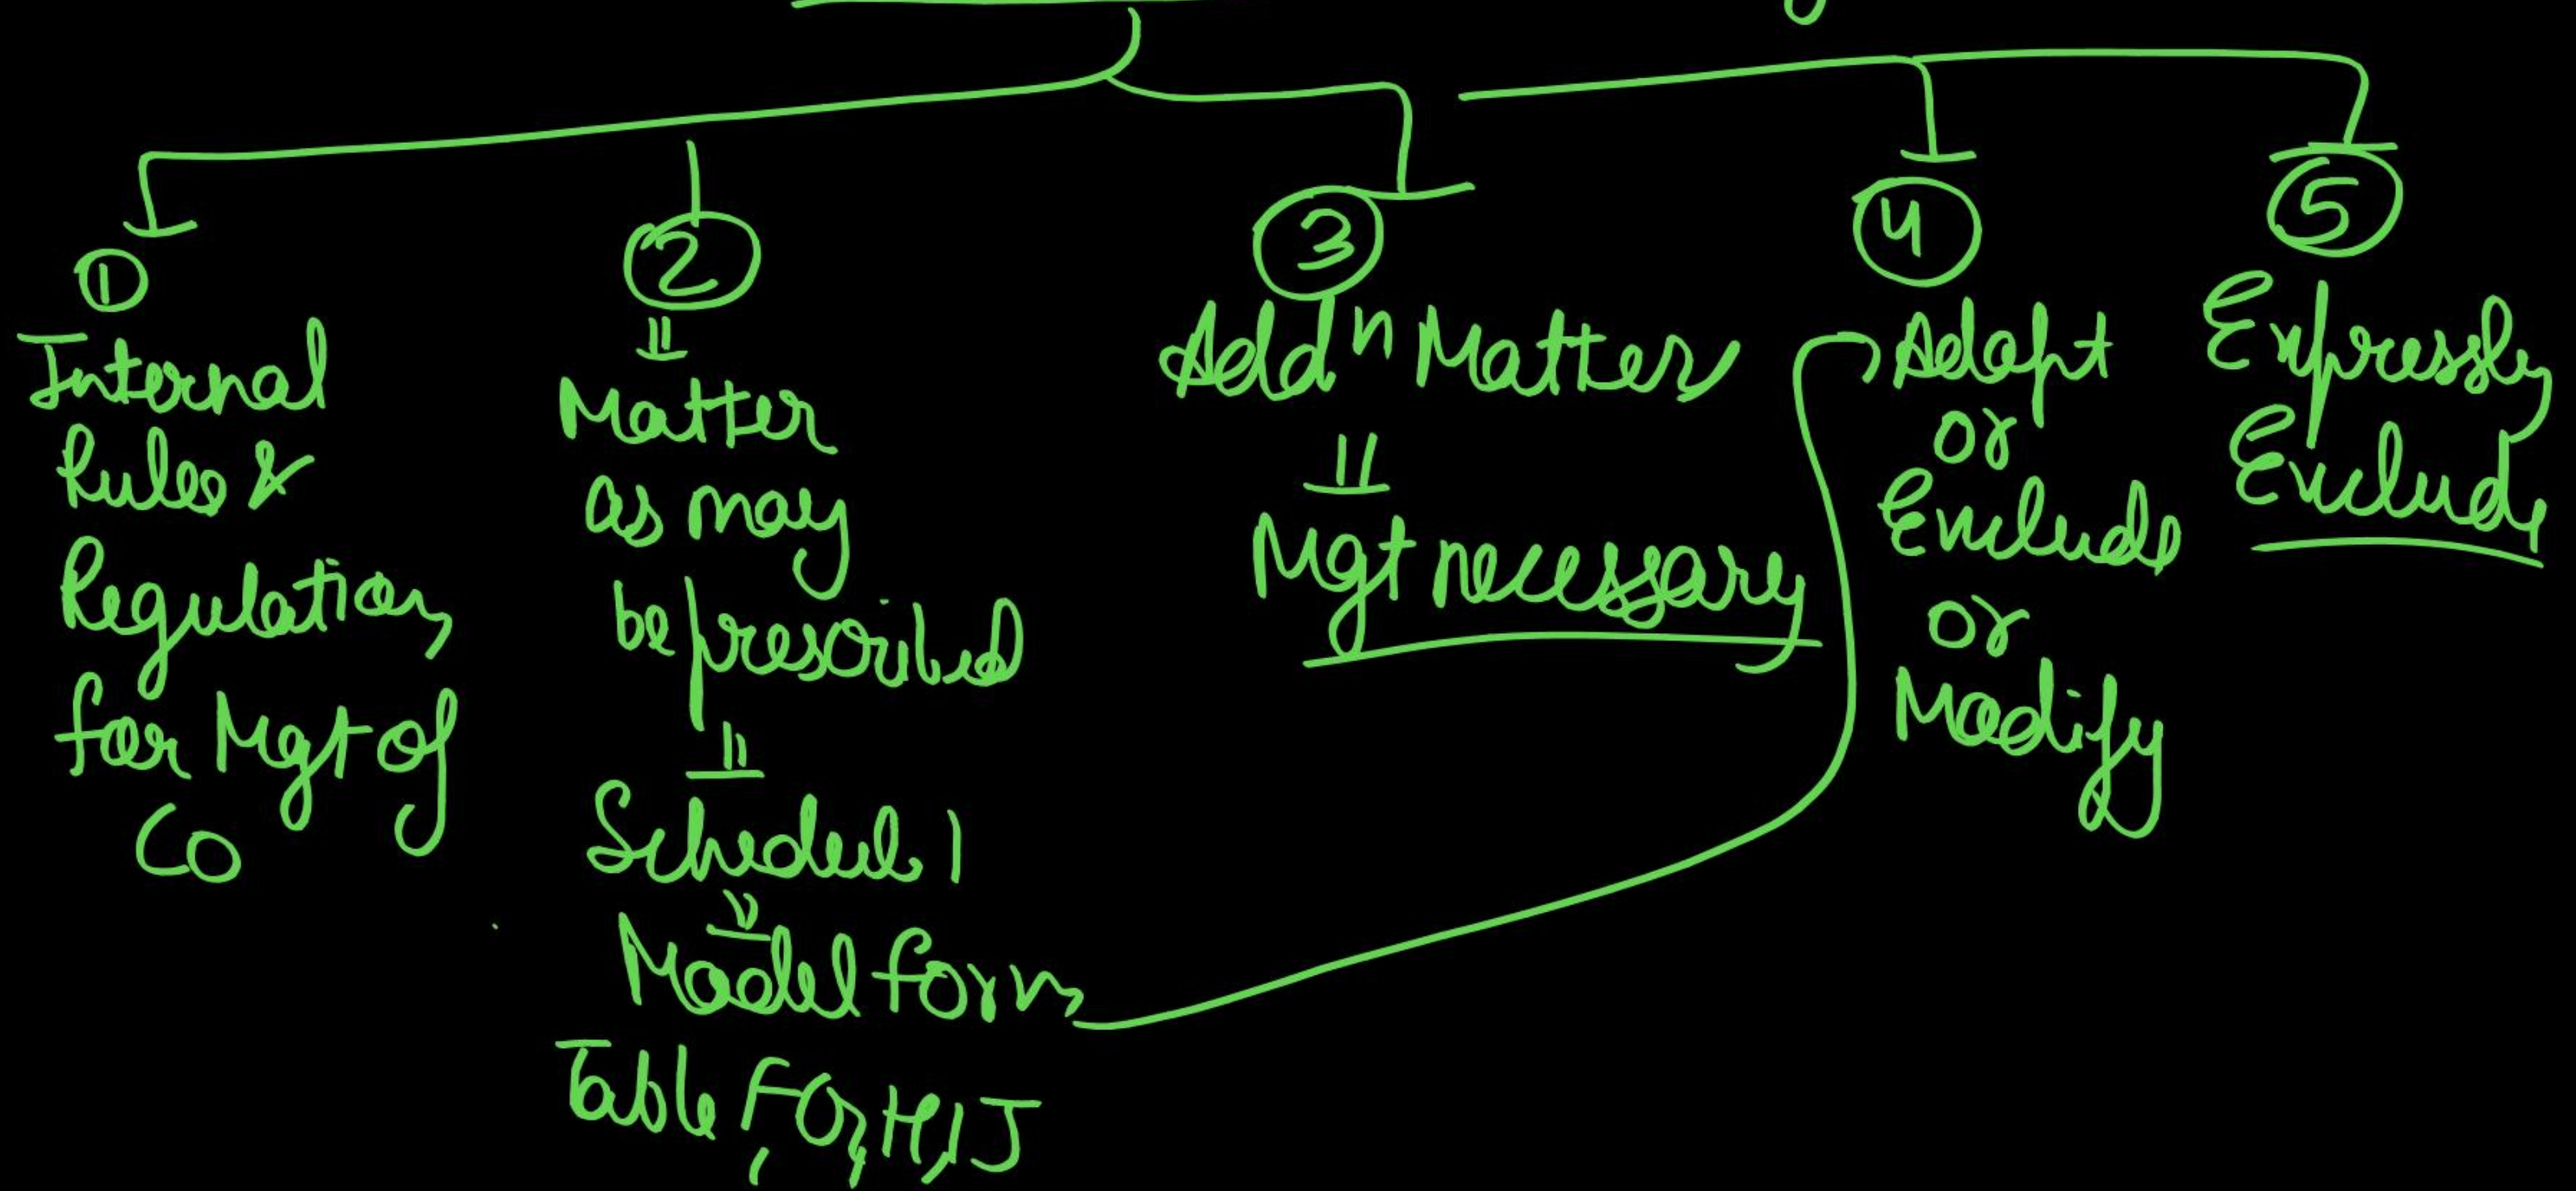 ①
Internal
Rules &
Regulation,
for Mgt of
Co
②
Matter
as may
be prescribed
Schedule 1
Model form
Table F, G, H, I J
③
Addⁿ Matter
Mgt necessary
④
Adopt
or
Exclude
or
Modify
⑤
Expressly
Exclude